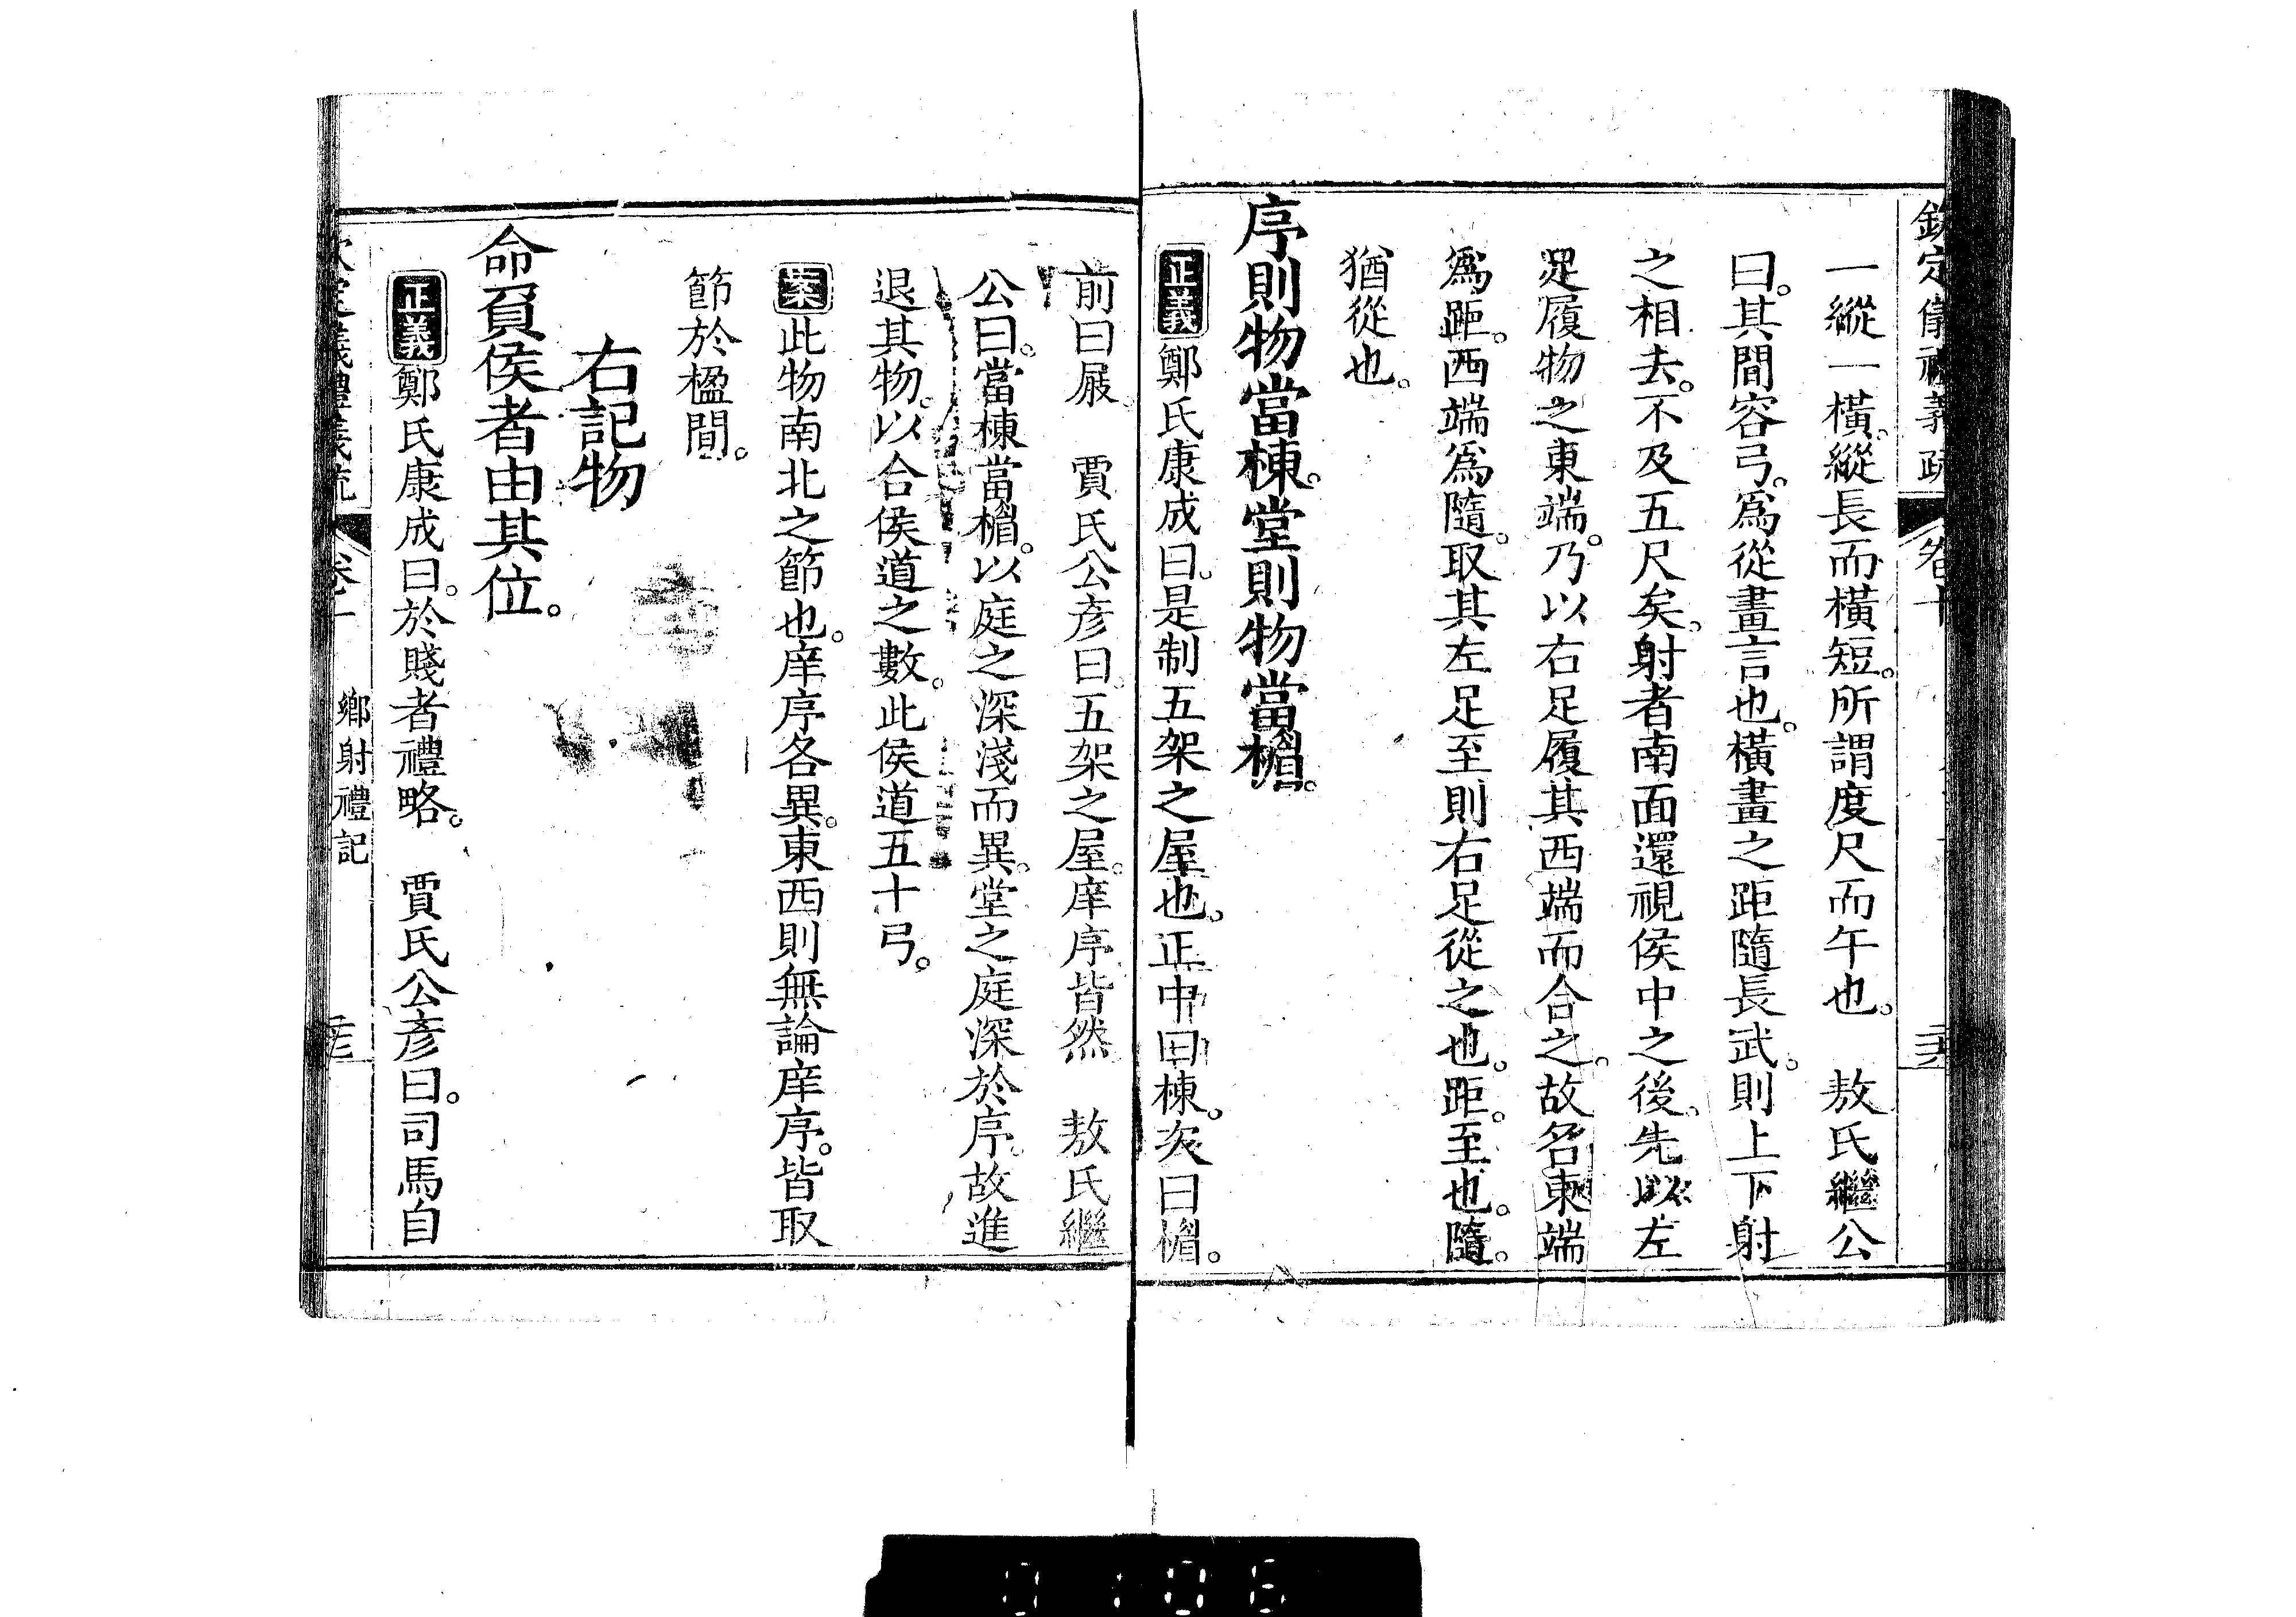 欽定儀禮義疏 卷十
一縱一橫。縱長而橫短。所謂度尺而午也。　敖氏繼公
曰。其間容弓。爲從畫言也。橫畫之距隨長武。則上下射
之相去。不及五尺矣。射者南面還視侯中之後。先以左
足履物之東端。乃以右足履其西端而合之。故名東端
爲距。西端爲隨。取其左足至則右足從之也。距。至也。隨。
猶從也。
序則物當棟。堂則物當楣。
正義鄭氏康成曰。是制五架之屋也。正中曰棟。次曰楣。
前曰庪。　賈氏公彥曰。五架之屋。庠序皆然　敖氏繼
公曰。當棟當楣。以庭之深淺而異。堂之庭深於序。故進
退其物。以合侯道之數。此侯道五十弓。
案此物南北之節也。庠序各異。東西則無論庠序。皆取
節於楹間。
右記物
命負侯者由其位。
正義鄭氏康成曰。於賤者禮略。　賈氏公彥曰。司馬自
欽定儀禮義疏 卷十 鄉射禮記
0106